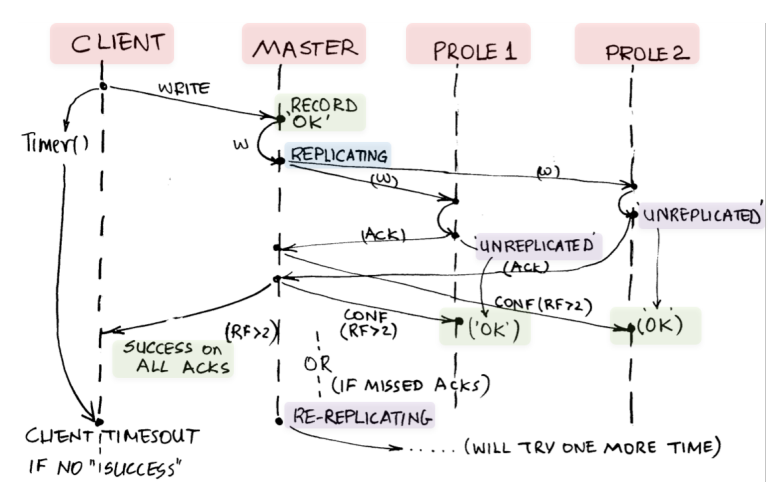 CLIENT
MASTER
PROLE 1
PROLE 2
WRITE
RECORD
'OK'
Timer()
W
REPLICATING
(W)
(W)
'UNREPLICATED'
(ACK)
'UNREPLICATED'
(ACK)
CONF (RF>2)
CONF
(RF>2)
('OK')
('OK')
(RF>2)
SUCCESS on
ALL ACKS
OR
(IF MISSED ACKS)
RE-REPLICATING
CLIENT TIMESOUT
IF NO "SUCCESS"
..... (WILL TRY ONE MORE TIME)